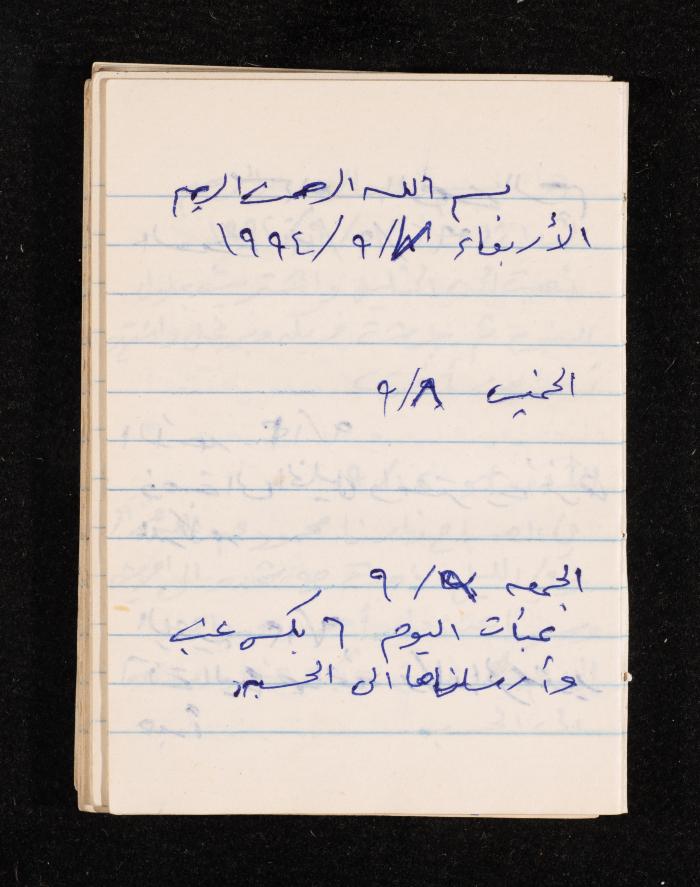 بسم الله الرحمن الرحيم
الأربعاء ٧/٩/١٩٩٤
الخميس ٨/٩
الجمعه ٩/٩
عبأت اليوم ٦ بكس عنب
وأرسلناها الى الحسبه